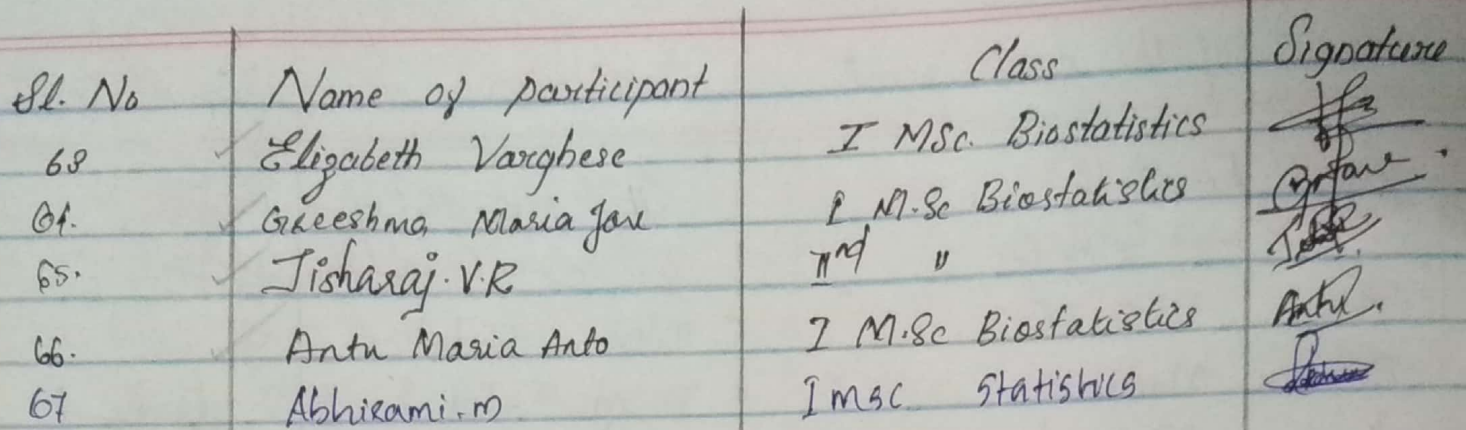 Sl. No Name of participant Class Signature
63 Elizabeth Varghese I MSc. Biostatistics
64. Greeshma Maria Jou I M.Sc Biostatistics
65. Jisharaj. V.R IInd "
66. Antu Maria Anto I M.Sc Biostatistics Antu.
67 Abhirami. m I msc Statistics